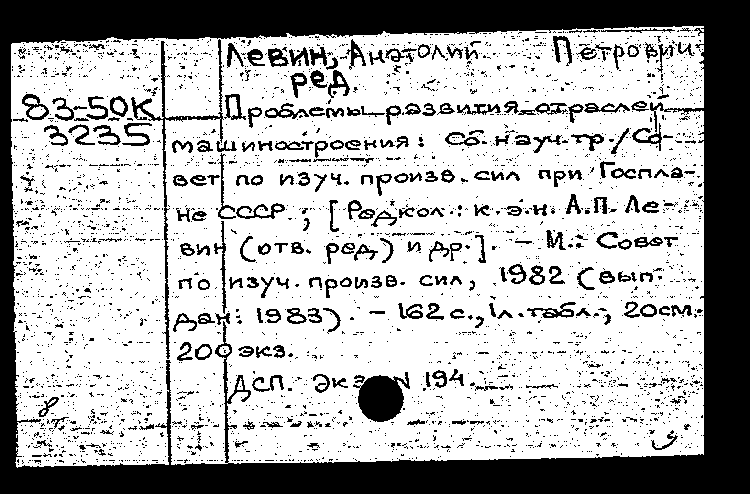 Левин, Анатолий Петрович
ред.
83-50К
3235
Проблемы развития отраслей
машиностроения: Сб. науч. тр./Со-
вет по изуч. произв. сил при Госпла-
не СССР ; [Редкол.: к.э.н. А.П. Ле-
вин (отв. ред.) и др.]. - М.: Совет
по изуч. произв. сил, 1982 (вып.
дан: 1983). - 162 с., 1л. табл.; 20см.
200 экз.
ДСП. Экз. N 194.